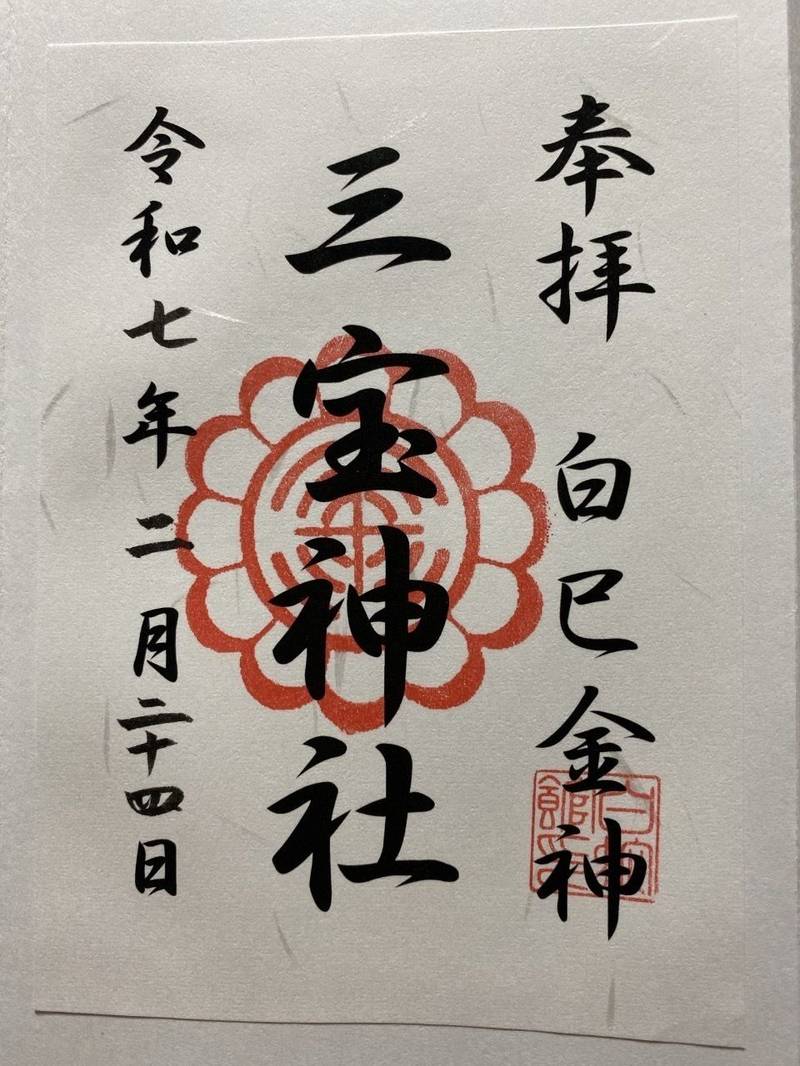 奉拝　白巳金神
三宝神社
令和七年二月二十四日